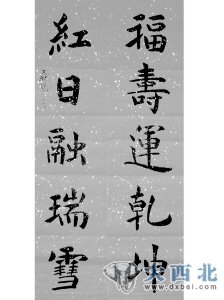 福壽運乾坤
紅日融瑞雪
大西北
www.dxbei.com